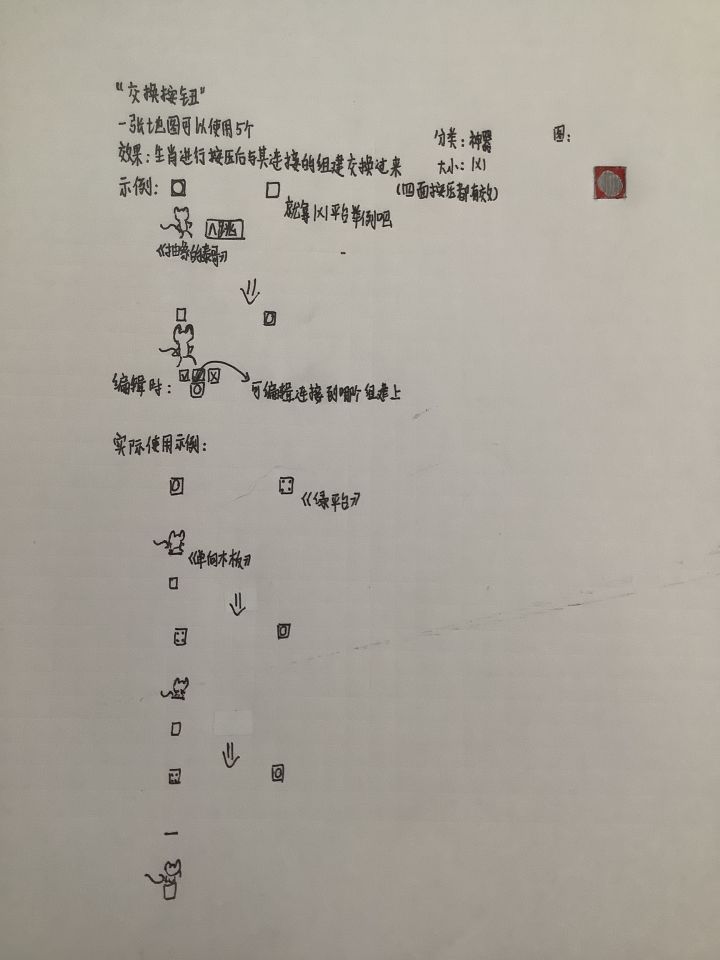 “交换按钮”
一张地图可以使用5个
分类：神器
图：
效果：生肖进行按压后与其连接的组建交换过来
大小：1×1
(四面按压都有效)
示例：
就拿1×1平台举例吧
八跳
《抽象的
编辑时：
可编辑连接到哪个组建上
实际使用示例：
《绿平台》
《单向木板》